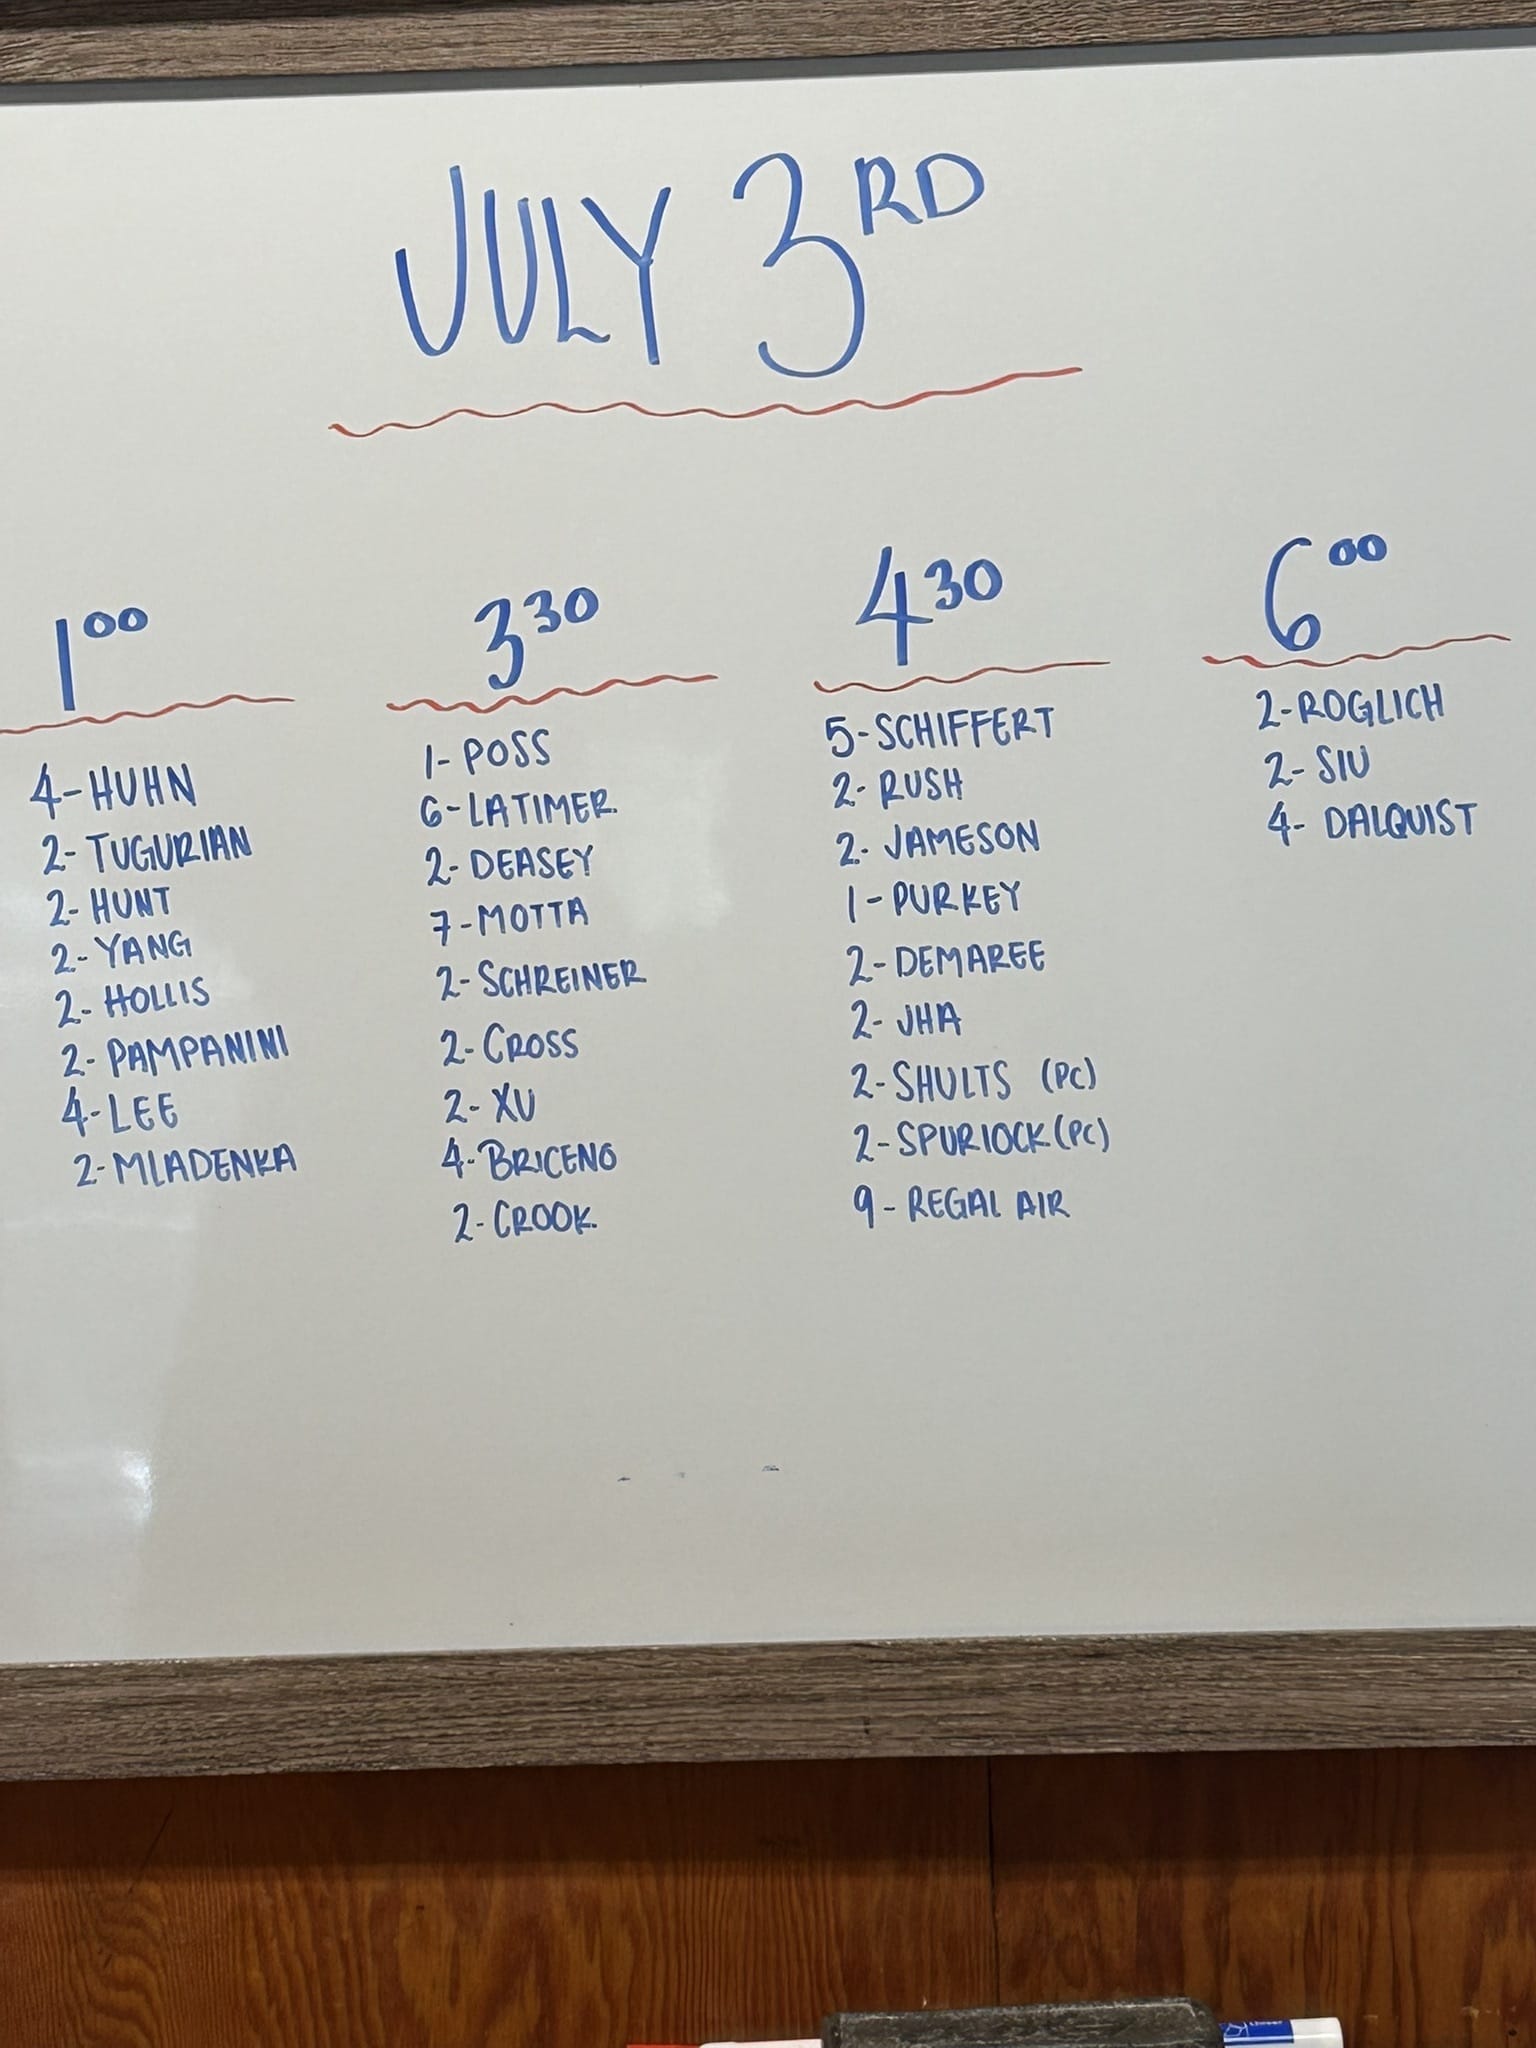 JULY 3RD
1 00
4- HUHN
2- TUGURIAN
2- HUNT
2- YANG
2- HOLLIS
2- PAMPANINI
4- LEE
2- MLADENKA
3 30
1- POSS
6- LATIMER
2- DEASEY
7- MOTTA
2- SCHREINER
2- CROSS
2- XU
4- BRICENO
2- CROOK
4 30
5- SCHIFFERT
2- RUSH
2- JAMESON
1- PURKEY
2- DEMAREE
2- JHA
2- SHULTS (PC)
2- SPURLOCK (PC)
9- REGAL AIR
6 00
2- ROGLICH
2- SIU
4- DALQUIST